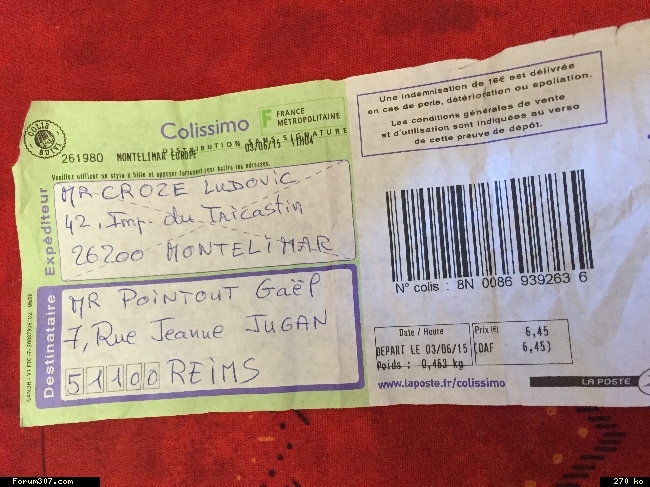 COLIS
SUIVI
Colissimo
F FRANCE
MÉTROPOLITAINE
DISTRIBUTION SANS SIGNATURE
261980 MONTELIMAR EUROPE 03/06/15 11H04
Veuillez utiliser un stylo à bille et appuyer fortement pour écrire les adresses.
Expéditeur
MR CROZE LUDOVIC
42, Imp. du Tricastin
26200 MONTELIMAR
Destinataire
MR POINTOUT Gaël
7, Rue Jeanne JUGAN
51100 REIMS
Une indemnisation de 16€ est délivrée
en cas de perte, détérioration ou spoliation.
Les conditions générales de vente
et d'utilisation sont indiquées au verso
de cette preuve de dépôt.
N° colis : 8N 0086 939263 6
Date / Heure
DEPART LE 03/06/15
Poids : 0,463 kg
Prix (€) 6,45
(DAF 6,45)
www.laposte.fr/colissimo
LA POSTE
Forum307.com
270 ko